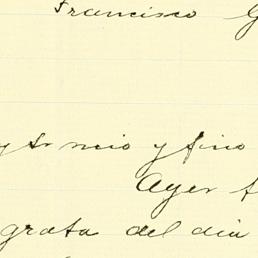 Francisco G
y fino
Ayer
grata del dia